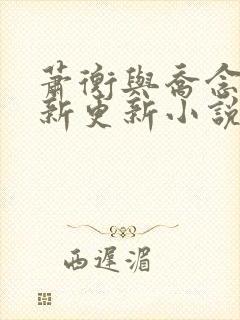 蕭衡與喬念
新更新小說
西遲湄